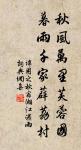 秋風萬里芙蓉國
暮雨千家薜荔村
譚用之秋宿湘江遇雨
詞典網